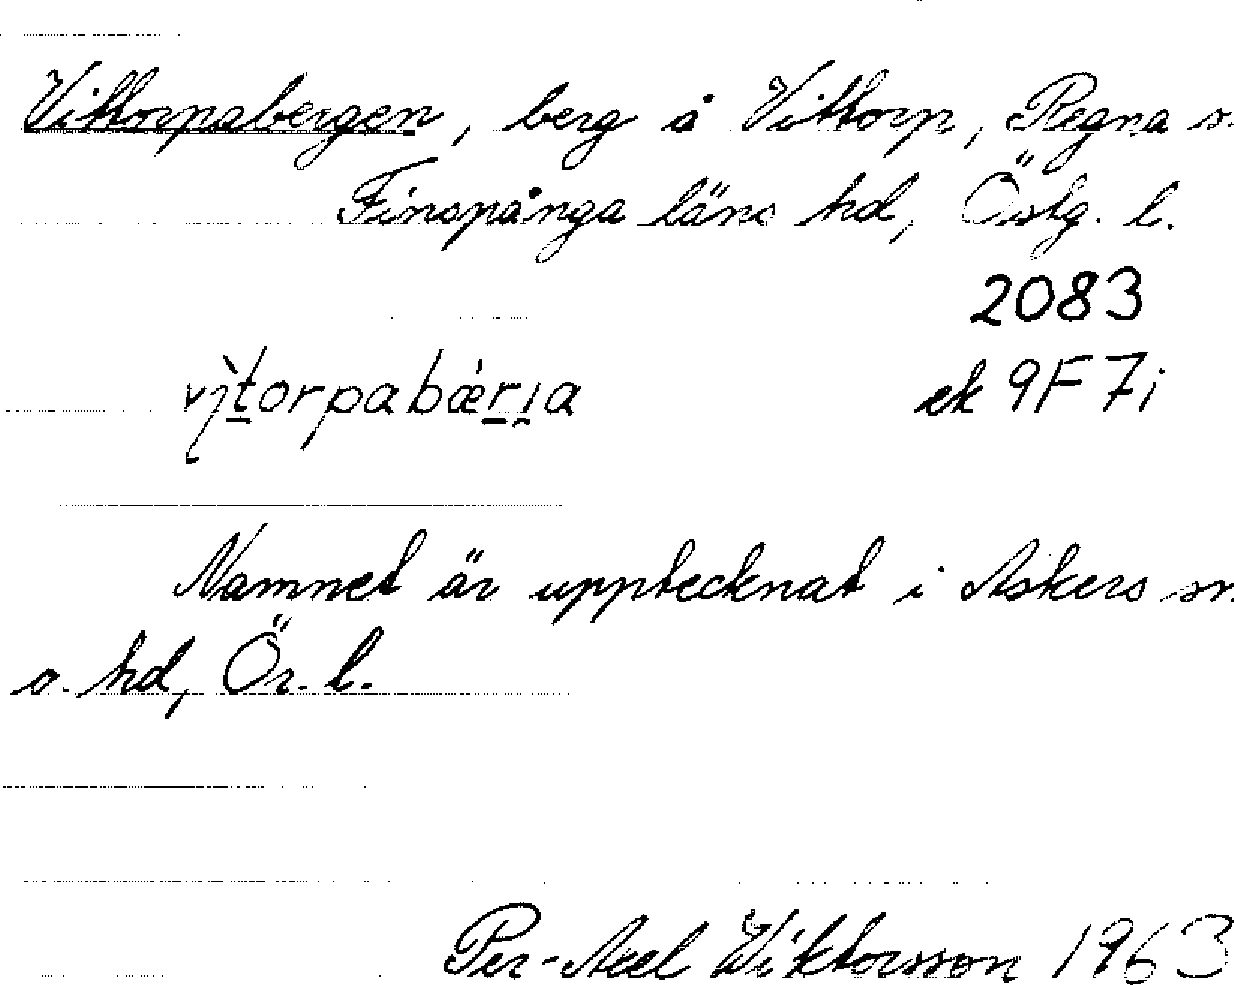 Vittorpabergen, berg å Vittorp, Regna sn
Finspånga läns hd, Östg. l.
2083
vı̀torpabǽrıa ek 9F 7i
Namnet är upptecknat i Askers sn
o. hd, Ör. l.
Per-Axel Wiktorsson 1963